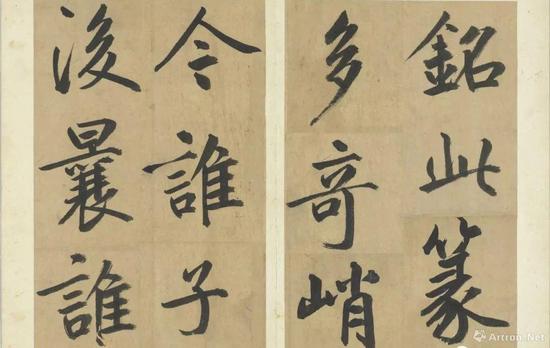 銘此篆
多竒峭
今誰子
後曩誰
Artron.Net